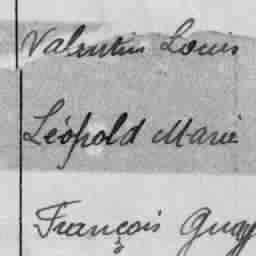 Valentin Louis
Léopold Marie
François Guay